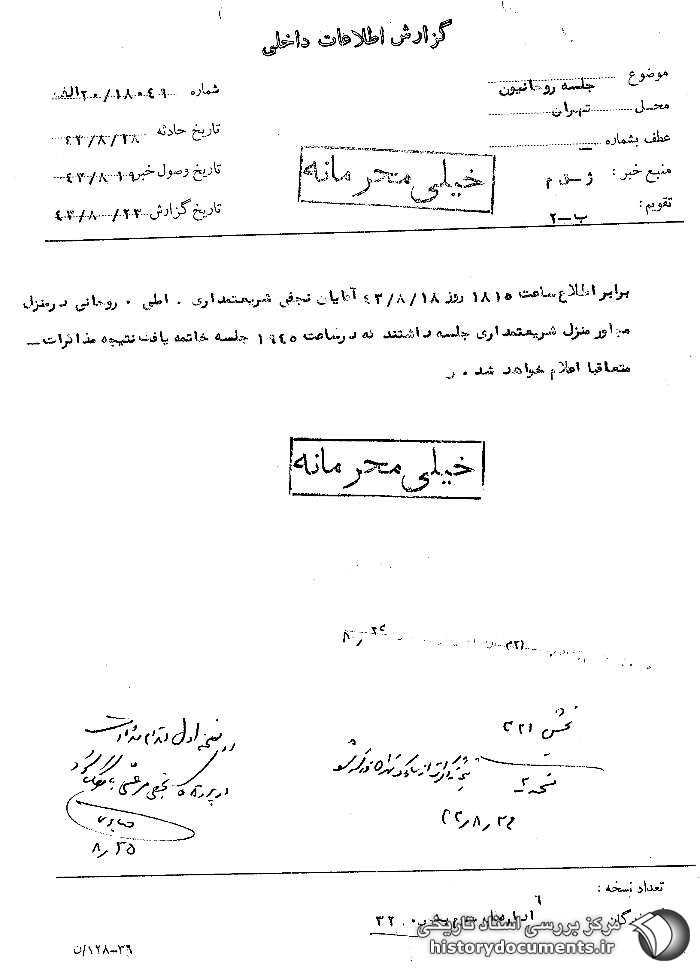 گزارش اطلاعات داخلی
موضوع جلسه روحانیون
محل تهران
عطف بشماره ـ
منبع خبر : ژ ـ ق م
تقویم : ب ـ ۲
شماره ۲۰/۱۸۰۴۹ الف
تاریخ حادثه ۴۳/۸/۱۸
تاریخ وصول خبر ۴۳/۸/۱۹
تاریخ گزارش ۴۳/۸/۲۳
خیلی محرمانه
برابر اطلاع ساعت ۱۸۱۵ روز ۴۳/۸/۱۸ آقایان نجفی شریعتمداری . املی . روحانی در منزل
مجاور منزل شریعتمداری جلسه داشتند که در ساعت ۱۹۴۵ جلسه خاتمه یافت نتیجه مذاکرات ـ
متعاقبا اعلام خواهد شد . ر
خیلی محرمانه
بخش ۳۲۱
نسخه اول
در پرونده نجفی مرعشی
۸/۲۵
تعداد نسخه :
۶
گیرندگان
۳۲۰
۳۶-۱۲۸/ن
مرکز بررسی اسناد تاریخی
historydocuments.ir